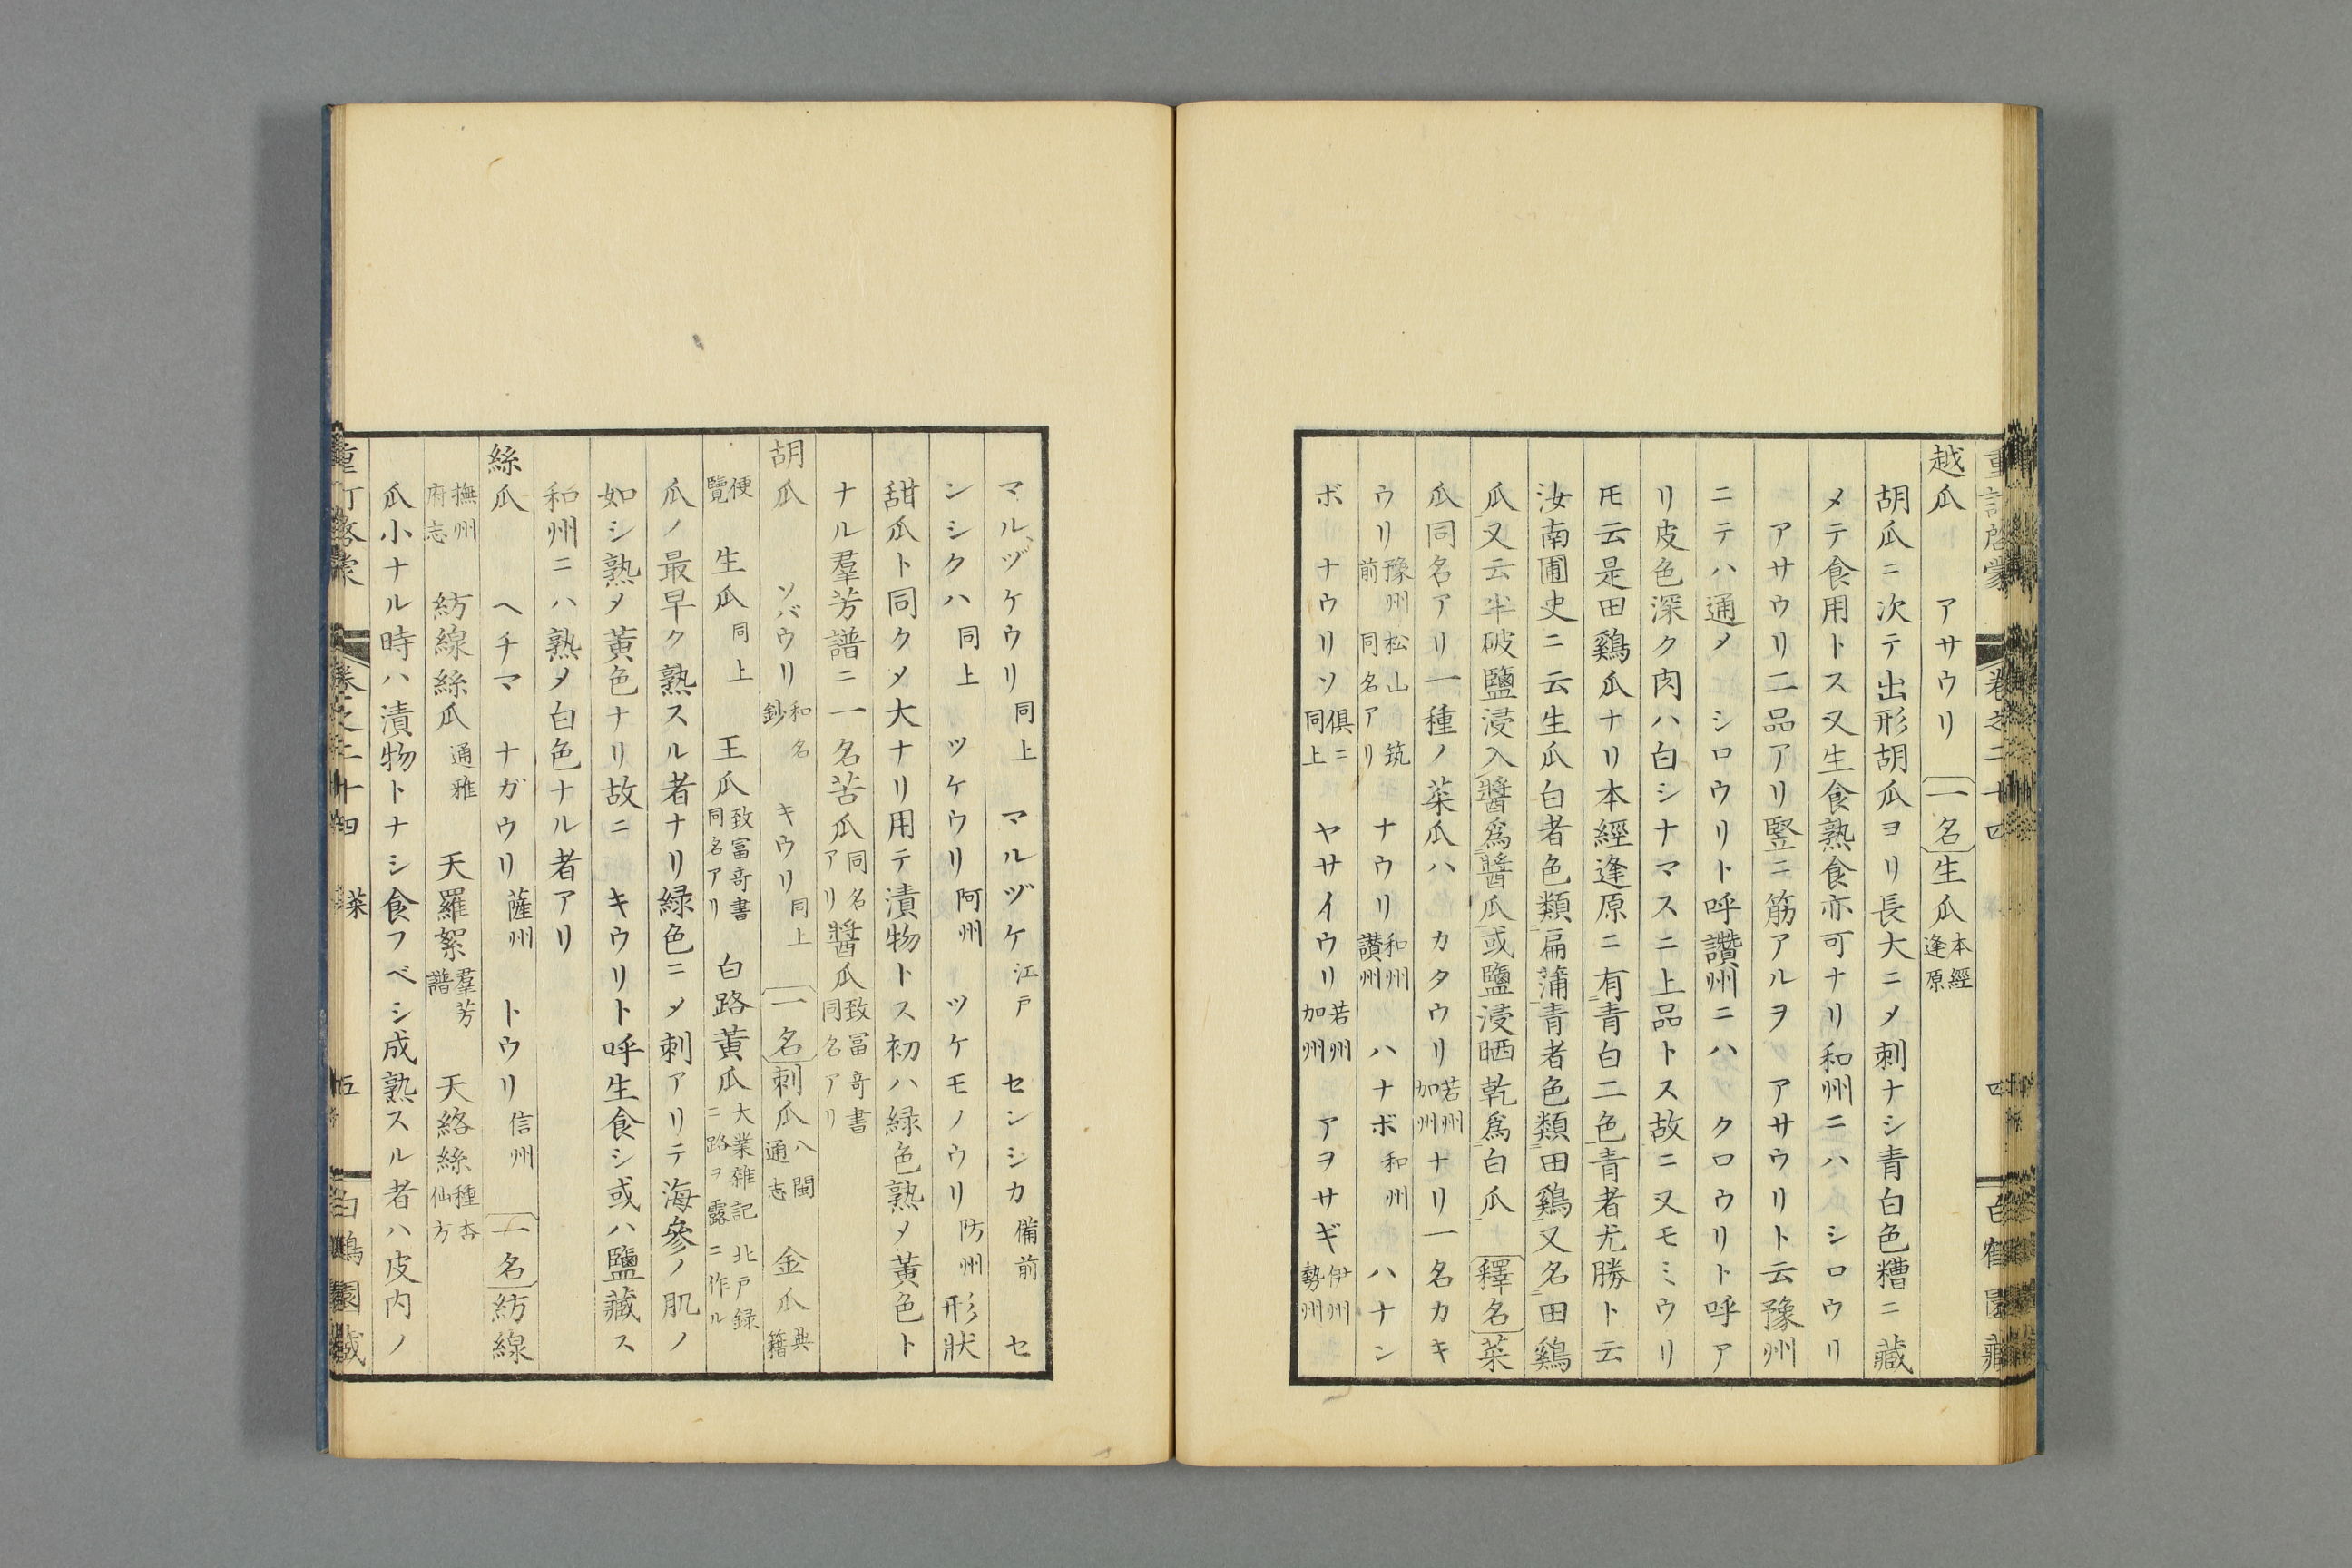 越瓜 アサウリ 一名生瓜本經逢原
胡瓜ニ次テ出形胡瓜ヨリ長大ニメ刺ナシ青白色糟ニ藏
メテ食用トス又生食熟食亦可ナリ和州ニハ シロウリ
アサウリ二品アリ竪ニ筋アルヲ アサウリト云豫州
ニテハ通メ シロウリト呼讚州ニハ クロウリト呼ア
リ皮色深ク肉ハ白シナマスニ上品トス故ニ又モミウリ
𪜈云是田鷄瓜ナリ本經逢原ニ有青白二色青者尤勝ト云
汝南圃史ニ云生瓜白者色類扁蒲青者色類田鷄又名田鷄
瓜又云半破鹽浸入醬爲醬瓜或鹽浸晒乾爲白瓜 釋名菜
瓜同名アリ一種ノ菜瓜ハ カタウリ若州加州ナリ一名カキ
ウリ豫州松山筑前同名アリ ナウリ和州讚州 ハナボ和州 ハナン
ボ ナウリソ俱ニ同上 ヤサイウリ若州加州 アヲサギ伊州勢州
マルヅケウリ同上 マルヅケ江戸 センシカ備前 セ
ンシクハ同上 ツケウリ阿州 ツケモノウリ防州形狀
甜瓜ト同クメ大ナリ用テ漬物トス初ハ緑色熟メ黃色ト
ナル羣芳譜ニ一名苦瓜同名アリ醬瓜致富奇書同名アリ
胡瓜 ソバウリ和名鈔 キウリ同上 一名刺瓜八閩通志 金瓜典籍
便覽 生瓜同上 王瓜致富奇書同名アリ 白路黃瓜大業雜記北戸録ニ路ヲ露ニ作ル
瓜ノ最早ク熟スル者ナリ緑色ニメ刺アリテ海參ノ肌ノ
如シ熟メ黃色ナリ故ニ キウリト呼生食シ或ハ鹽藏ス
和州ニハ熟メ白色ナル者アリ
絲瓜 ヘチマ ナガウリ薩州 トウリ信州 一名紡線
撫州府志 紡線絲瓜通雅 天羅絮羣芳譜 天絡絲種杏仙方
瓜小ナル時ハ漬物トナシ食フベシ成熟スル者ハ皮内ノ